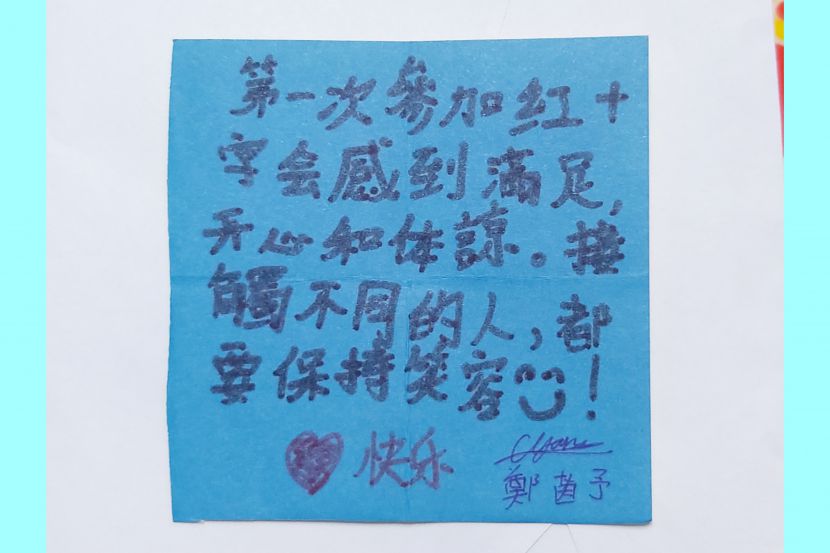 第一次參加红十
字会感到滿足,
开心和体諒。接
觸不同的人,都
要保持笑容!
快乐
鄭茵予